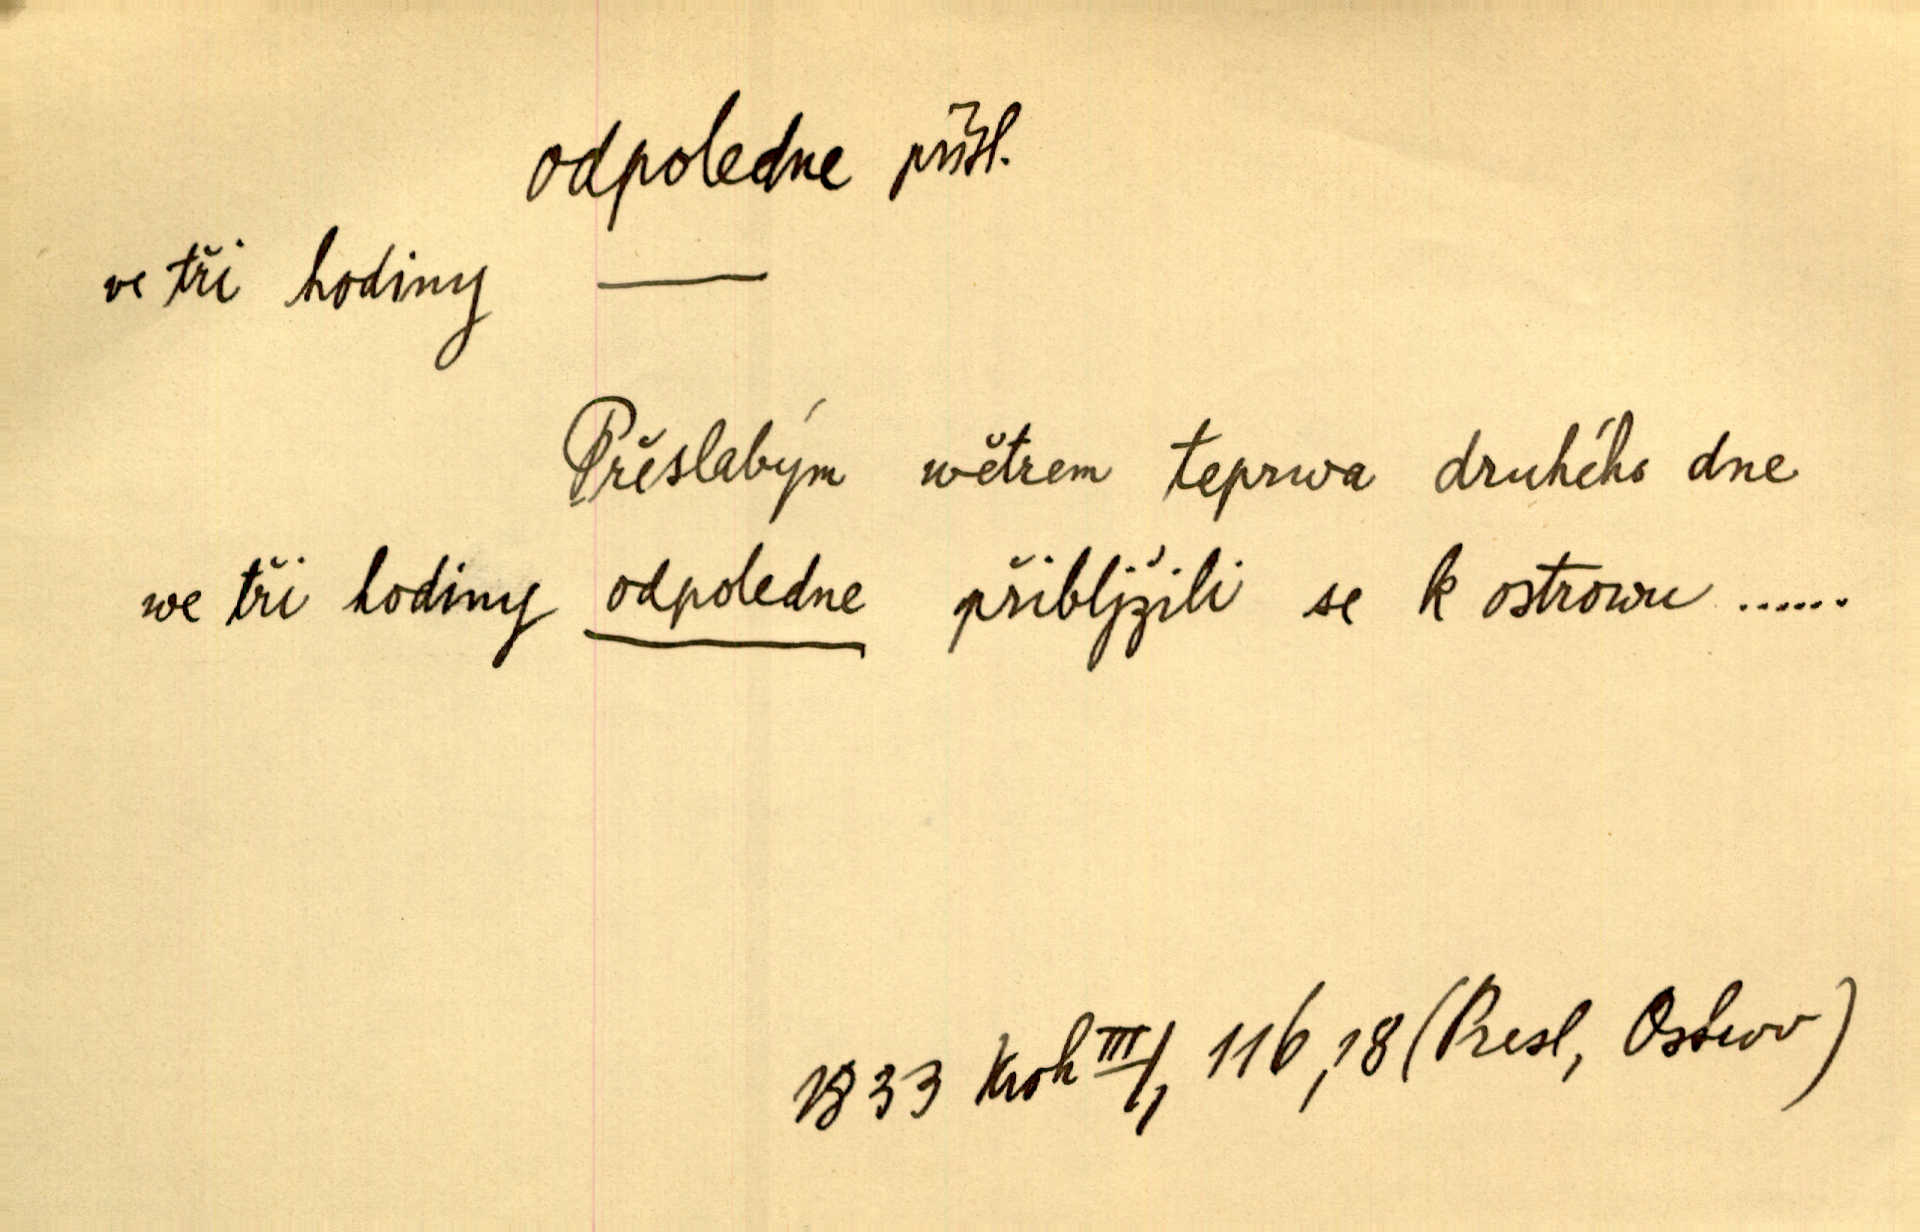 odpoledne přísl.
ve tři hodiny —
Přeslabým wětrem teprwa druhého dne
we tři hodiny odpoledne přibljžili se k ostrowu ......
1833 Krok III/1, 116,18 (Presl, Ostrov)